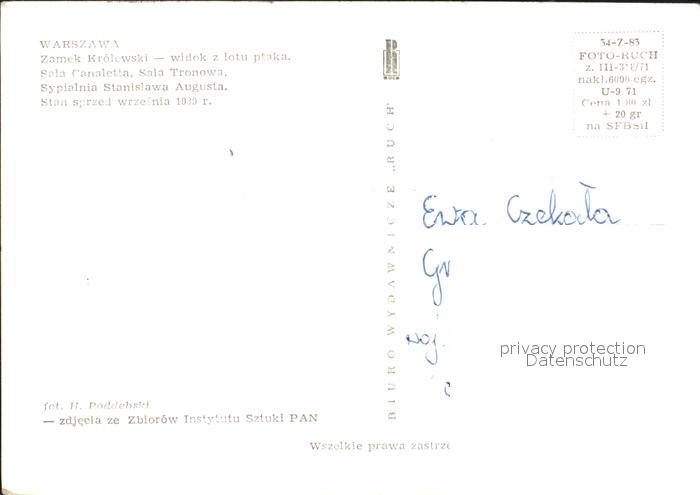 WARSZAWA
Zamek Królewski — widok z lotu ptaka.
Sala Canaletta, Sala Tronowa,
Sypialnia Stanisława Augusta.
Stan sprzed września 1939 r.
34-Z-83
FOTO-RUCH
z. III-318/71
nakł. 6000 egz.
U-9 71
Cena 1.80 zł
+ 20 gr
na SFBSiI
BIURO WYDAWNICZE „RUCH"
Ewa Czekała
Gr
woj.
privacy protection
Datenschutz
fot. H. Poddębski
— zdjęcia ze Zbiorów Instytutu Sztuki PAN
Wszelkie prawa zastrze